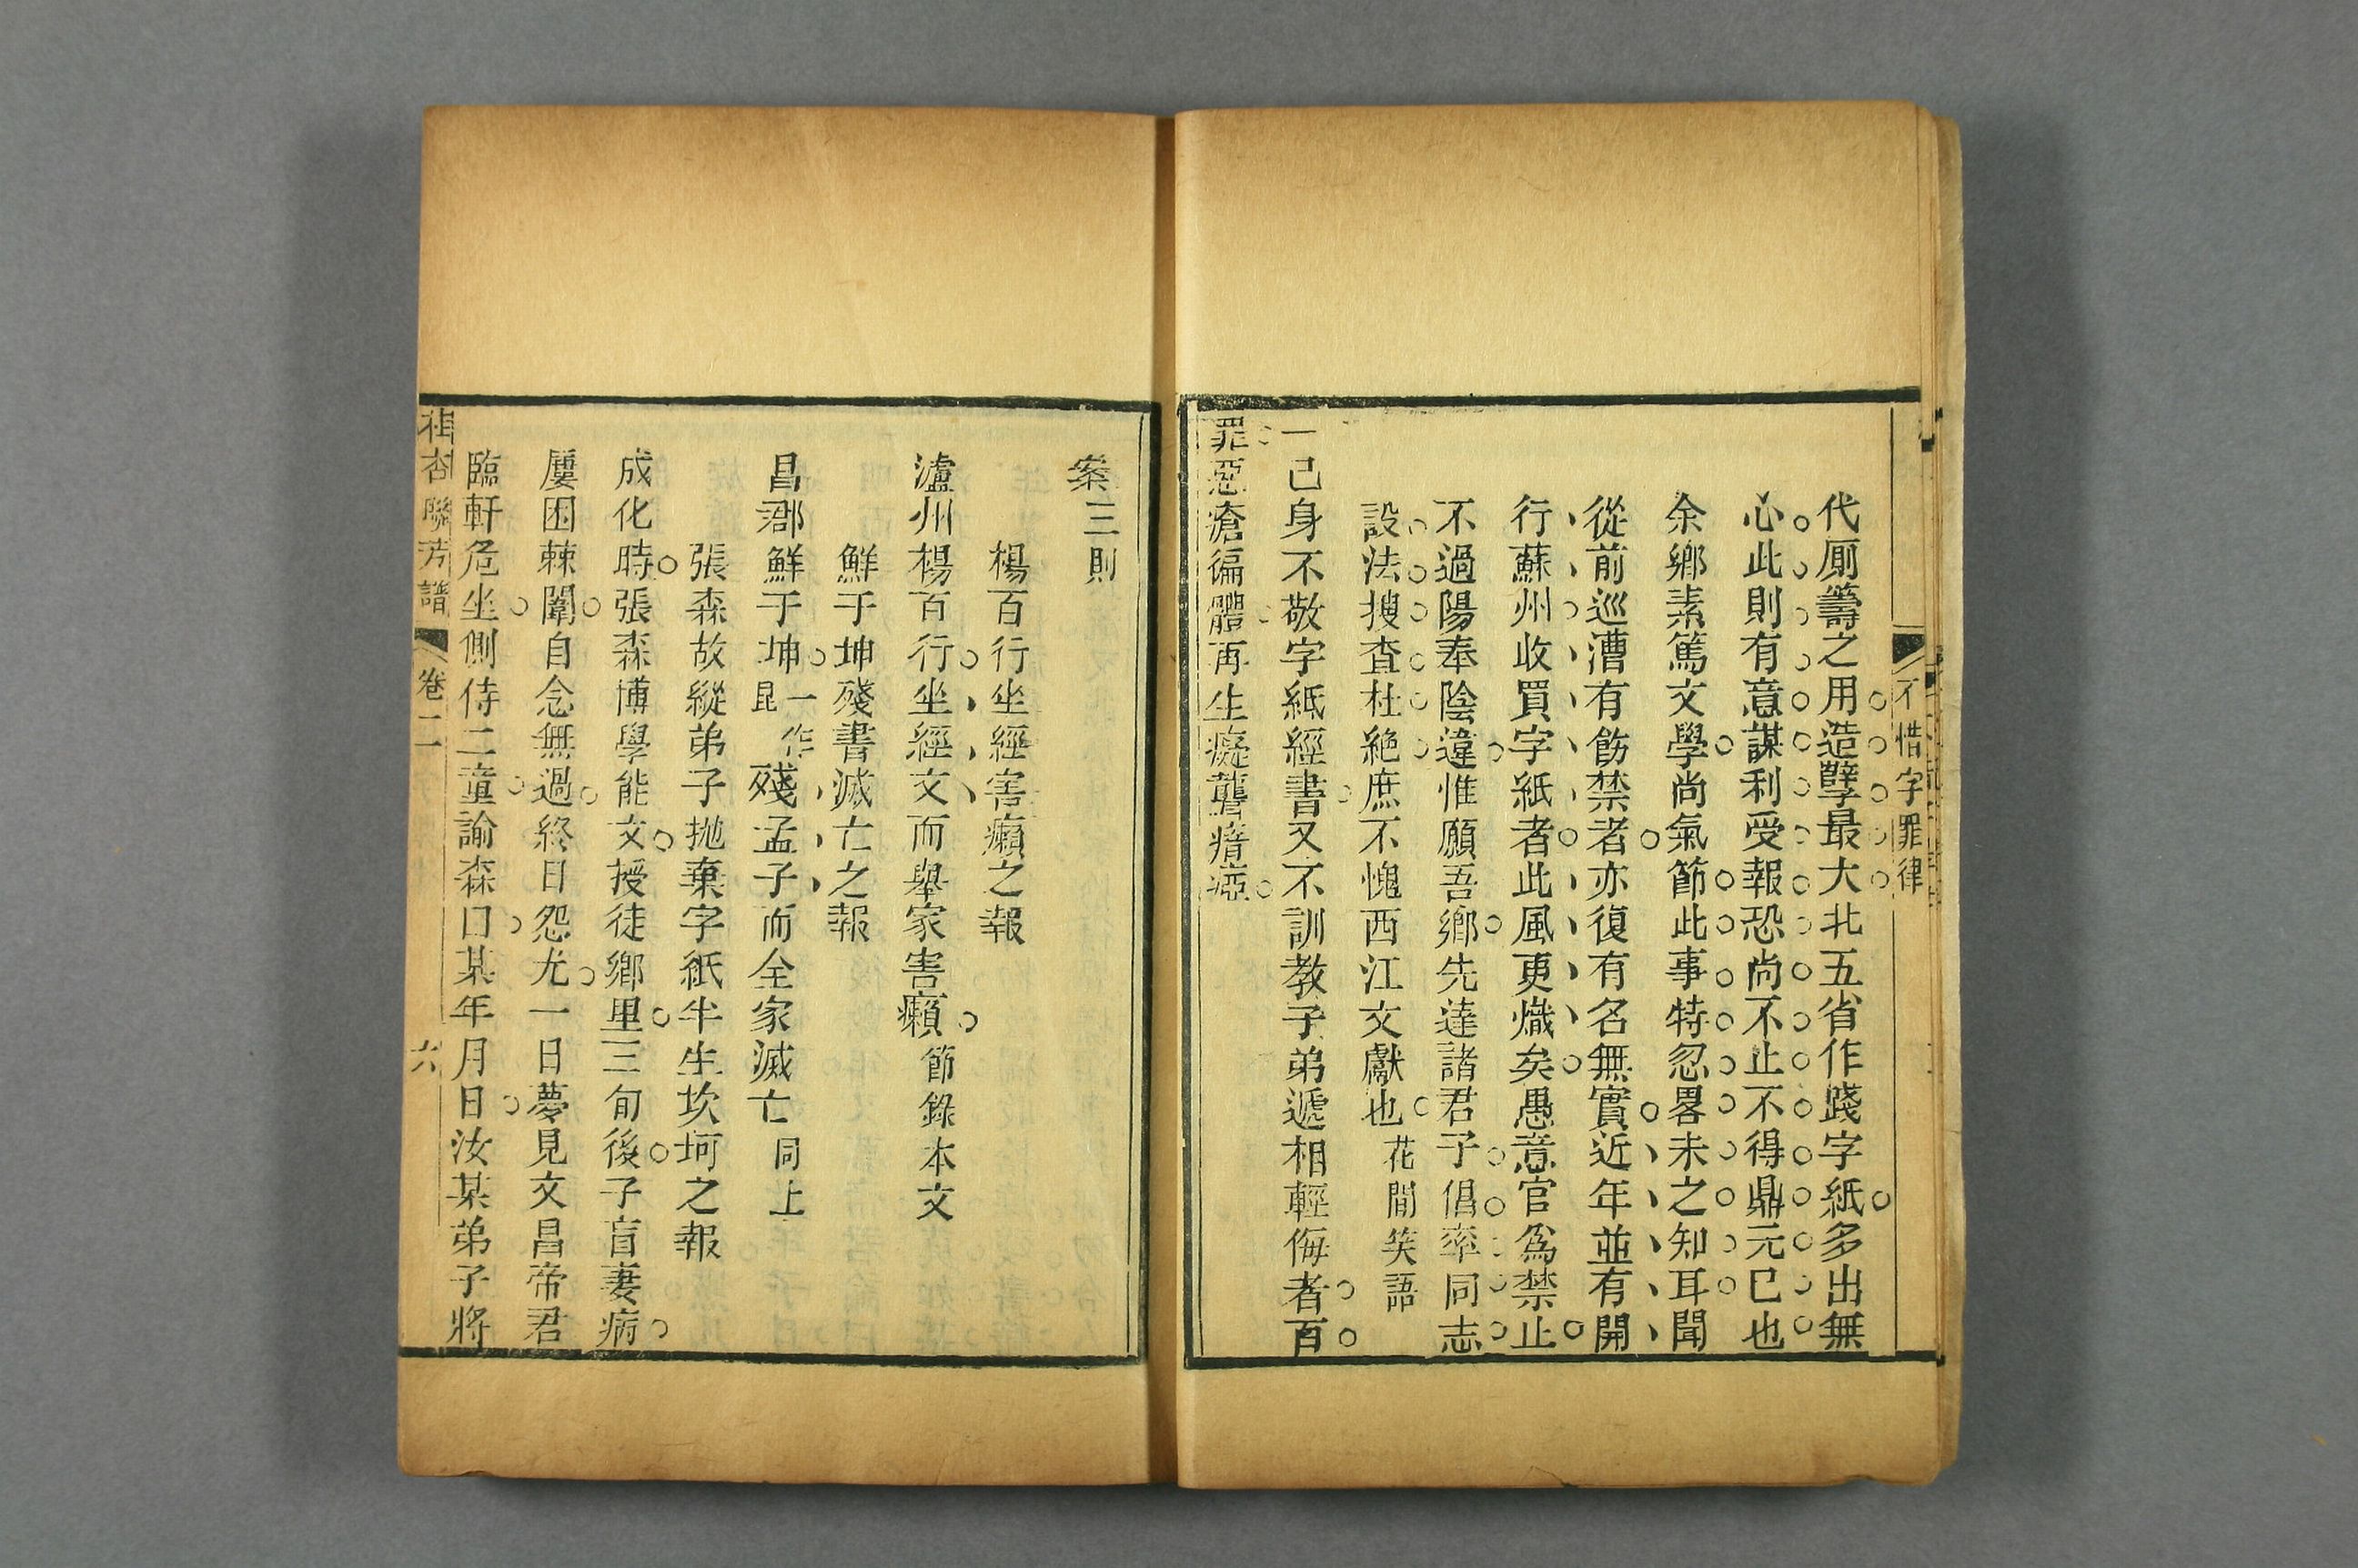 不惜字罪律
代厠籌之用造孽最大北五省作踐字紙多出無
心此則有意謀利受報恐尚不止不得鼎元巳也
余鄉素篤文學尚氣節此事特忍畧未之知耳聞
從前巡漕有飭禁者亦復有名無實近年並有開
行蘇州收買字紙者此風更熾矣愚意官爲禁止
不過陽奉陰違惟願吾鄉先達諸君子倡率同志
設法搜查杜絶庶不愧西江文獻也花間笑語
一己身不敬字紙經書又不訓教子弟遞相輕侮者百
罪惡瘡徧體再生癡聾瘖瘂
案三則
楊百行坐經害癩之報
瀘州楊百行坐經文而舉家害癩節錄本文
鮮于坤殘書滅亡之報
昌郡鮮于坤一作昆殘孟子而全家滅亡同上
張森故縱弟子抛棄字紙半生坎坷之報
成化時張森博學能文授徒鄉里三旬後子盲妻病
屢困棘闈自念無過終日怨尤一日夢見文昌帝君
臨軒危坐側侍二童諭森曰某年月日汝某弟子將
桂杏聯芳譜 卷二 六